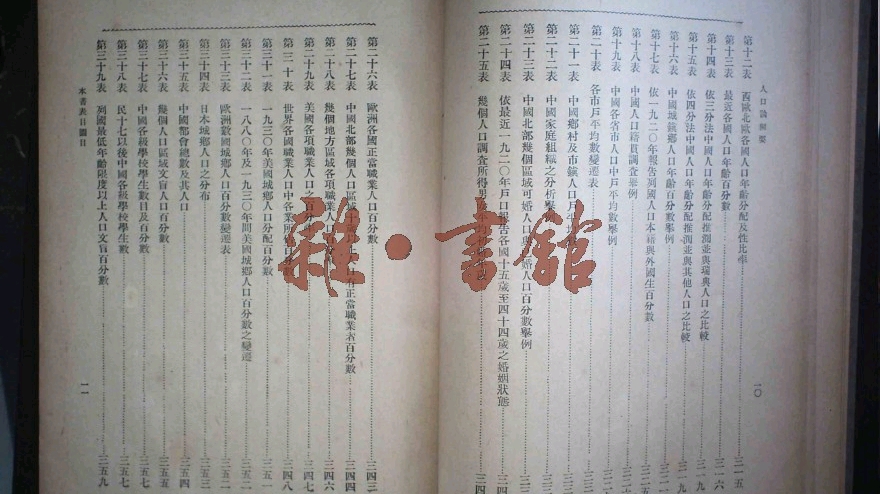 人口論綱要
第十二表 西歐北歐各國人口年齡分配及性比率 三一五
第十三表 最近各國人口年齡百分數
第十四表 依三分法中國人口年齡分配推測並與瑞典人口之比較
第十五表 依四分法中國人口年齡分配推測並與其他人口之比較
第十六表 中國城鎮鄉人口年齡百分數舉例
第十七表 依一九二〇年報告列國人口本籍與外國生百分數
第十八表 人口籍貫調查舉例
第十九表 中國各省市人口中戶平均數舉例
第二十表 各市戶平均數變遷表
第二十一表 中國鄉村及市鎮人口戶平均
第二十二表 中國家庭組織之分析舉例
第二十三表 中國北部幾個區域可婚人口與已婚人口百分數舉例
第二十四表 依最近一九二〇年戶口報告各國十五歲至四十四歲之婚姻狀態
第二十五表 幾個人口調查所得男女平均
一〇
第二十六表 歐洲各國正當職業人口百分數 三四三
第二十七表 中國北部幾個人口區域十 以上人口有正當職業者百分數 三四四
第二十八表 幾個地方區域各項職業人口百分 三四六
第二十九表 美國各項職業人口之百分 三四七
第三十表 世界各國職業人口中各業所 百分數 三四八
第三十一表 一九三〇年美國城鄉人口分配百分數 三五一
第三十二表 一八八〇年及一九三〇年間美國城鄉人口百分數之變遷 三五二
第三十三表 歐洲數國城鄉人口百分數變遷表 三五二
第三十四表 日本城鄉人口之分布 三五三
第三十五表 中國都會總數及其人口 三五四
第三十六表 幾個人口區域文盲人口百分數 三五五
第三十七表 中國各級學校學生數目及百分數 三五七
第三十八表 民十七以後中國各級學校學生數 三五七
第三十九表 列國最低年齡限度以上人口文盲百分數 三五九
本書表目圖目
一一
雜·書館